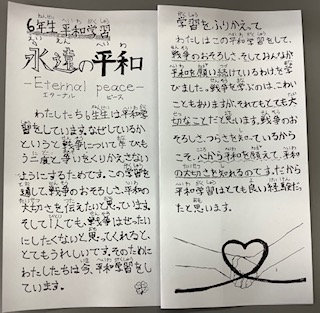 6年生平和学習
永遠の平和
-Eternal peace-
エターナル ピース
わたしたち6年生は平和学
習をしています。なぜしているか
というと戦争について学びも
う二度と争いをくりかえさない
ようにするためです。この学習を
通して、戦争のおそろしさ、平和の
大切さを伝えたいと思っています。
そして1人でも、戦争はぜったい
にしたくないと思ってくれると、
とてもうれしいです。そのために
わたしたちは今、平和学習をし
ています。
学習をふりかえって
わたしはこの平和学習をして、
戦争のおそろしさ、そしてみんなが
平和を願い続けているわけを学
びました。戦争を学ぶのは、こわい
こともありますが、それでもとても大
切なことだと思います。戦争のお
そろしさ、つらさを知っているから
こそ、心から平和を願えて、平和
の大切さを知れるのです。だから
平和学習はとても良い経験だっ
たと思います。